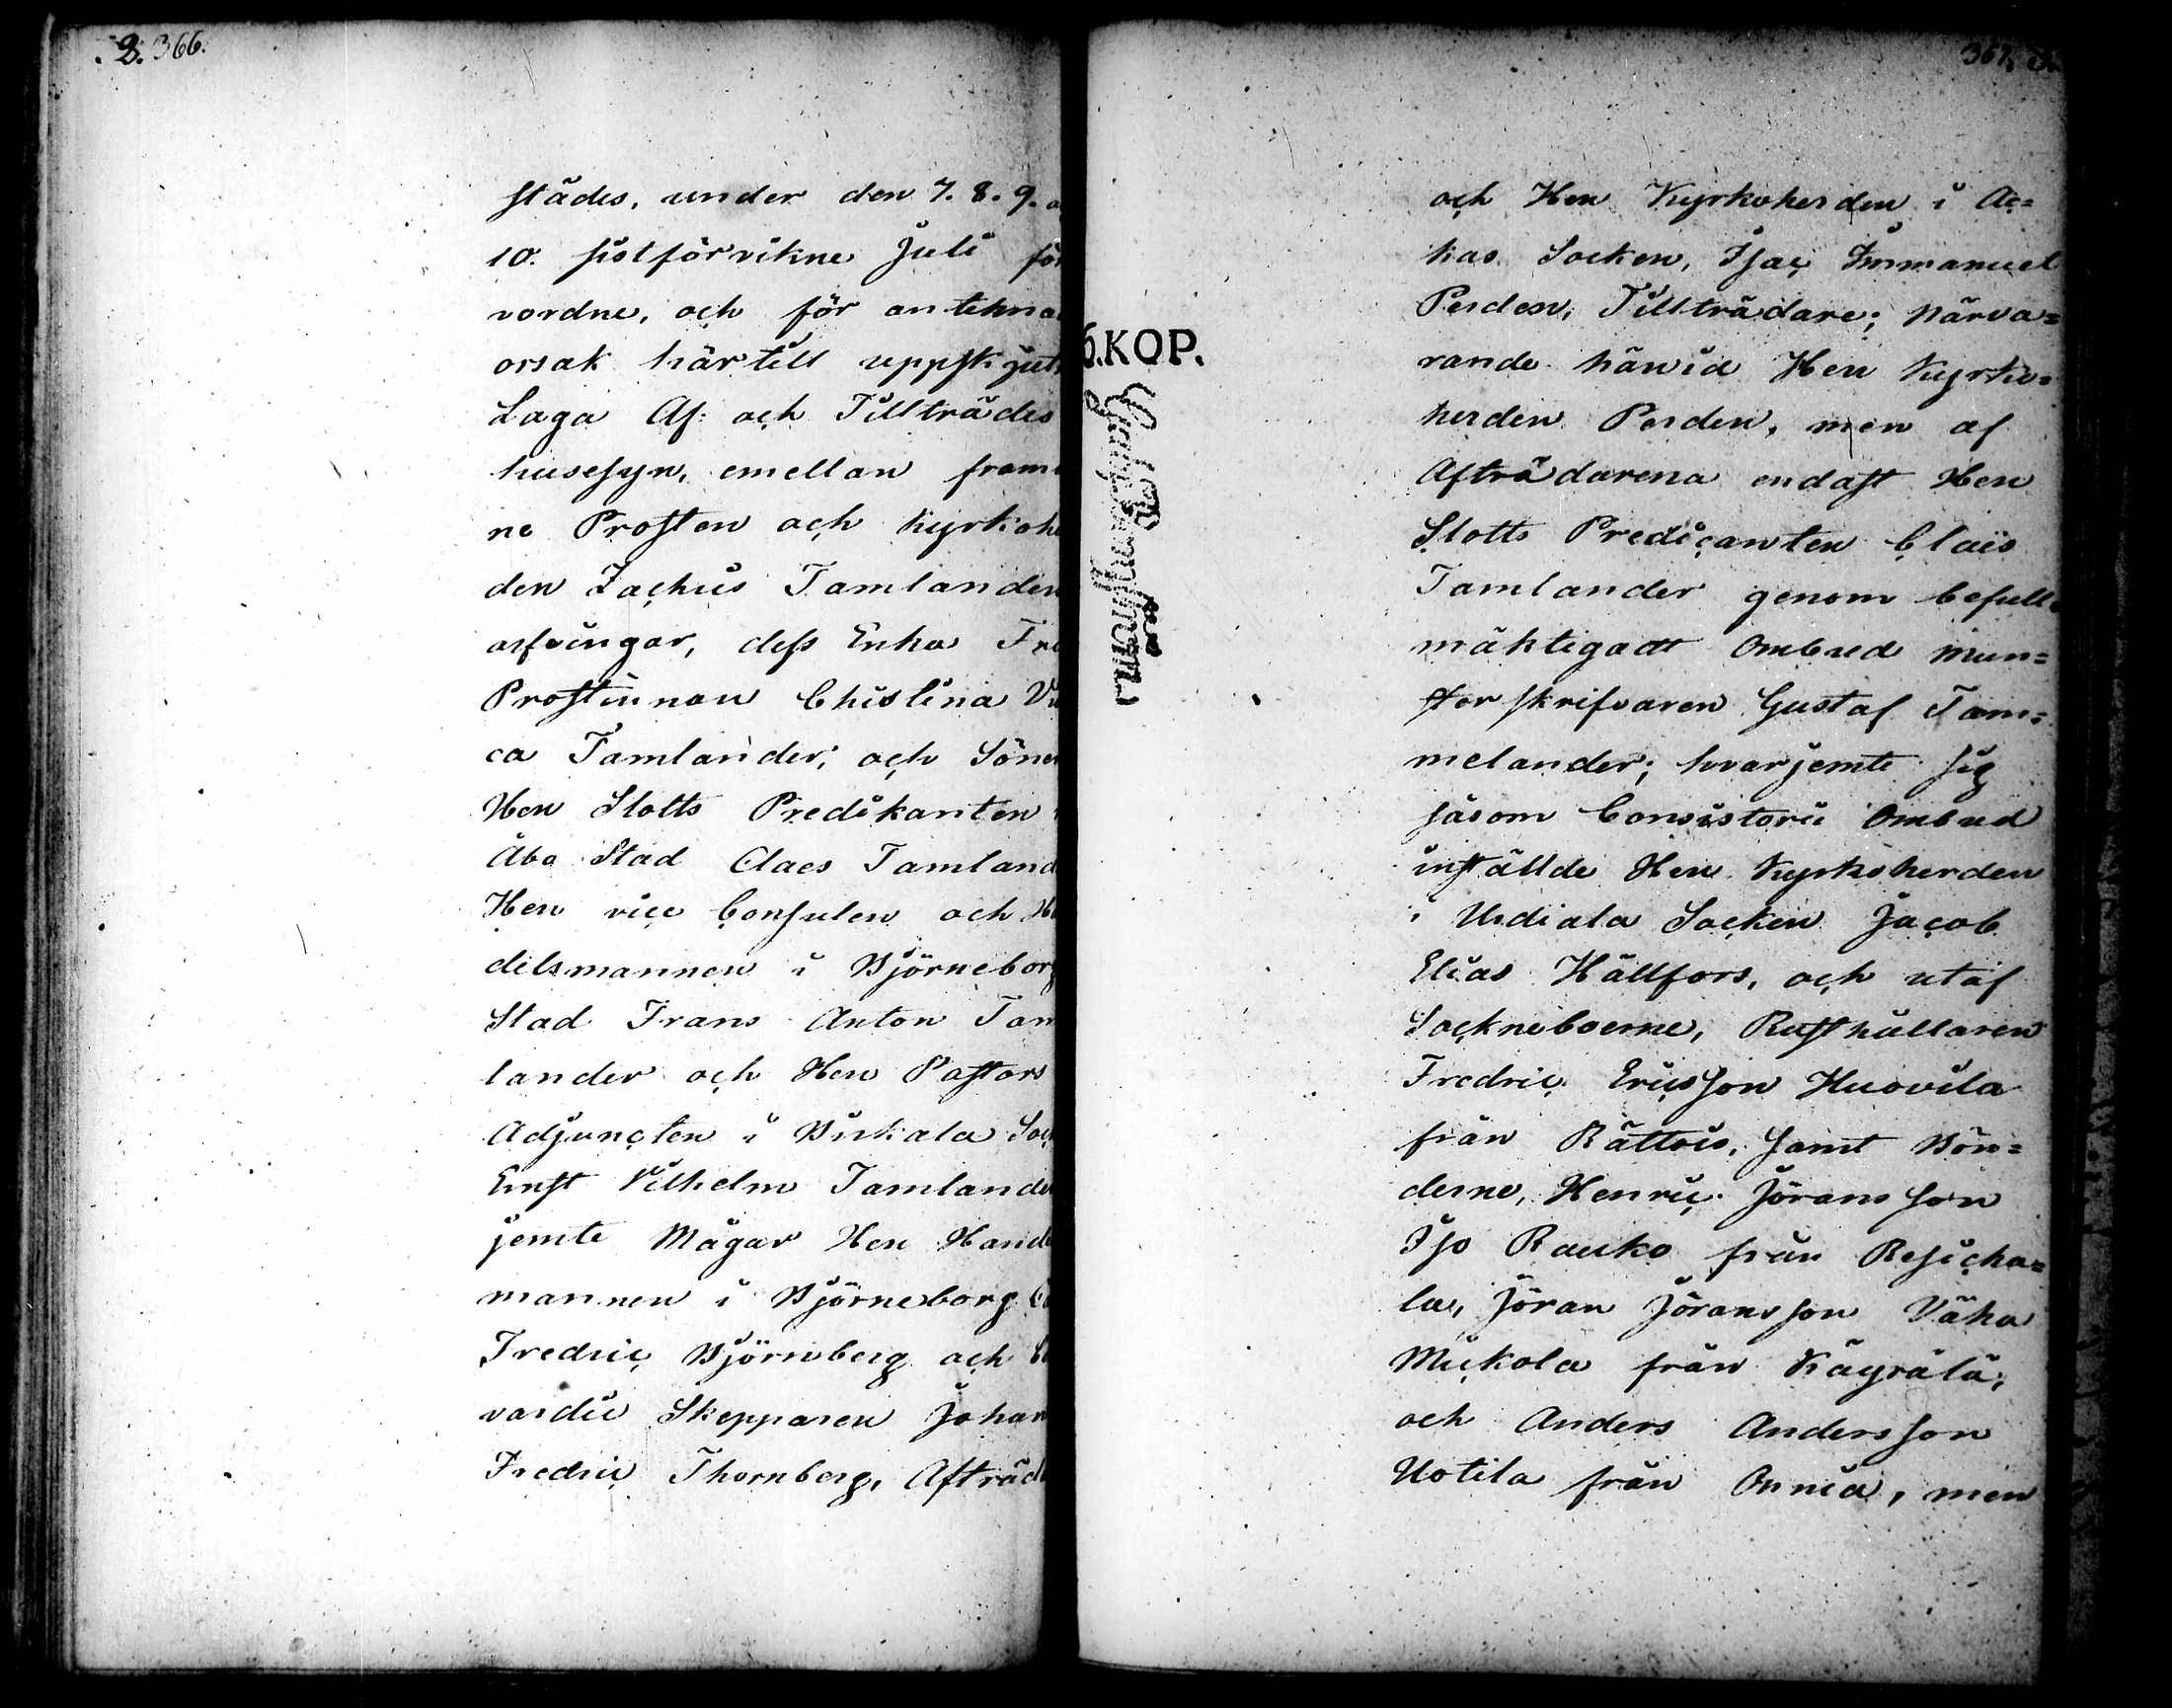 2. 366.
städes, under den 7. 8. 9.
10. sistförvikne Juli för
vordne, och för antekna
orsak härtill uppskjut
Laga Af- och Tillträdes
husesyn, emellan fram
ne Prosten och Kyrkohe
den Zachris Tamlander
arfvingar, dess Enka Fru
Prostinnan Chistina
ca Tamlander, och Söner
Herr Slotts Predikanten
Åbo Stad Claes Tamland
Herr vice Consulen och
delsmannen i Björneborg
Stad Frans Anton Tam
lander och Herr Pastors
Adjuncten i Birkala Soc
Ernst Vilhelm Tamlande
jemte Mågar Herr Hande
mannen i Björneborg
Fredric Björnberg och
vardie Skepparen Johan
Fredric Thornberg, Afträd
367.
6.KOP.
och Herr Kyrkoherden i Ac=
kas Socken, Isac Immanuel
Perden, Tillträdare; Närva=
rande härvid Herr Kyrko=
herden Perden, men af
Afträdarena endast Herr
Slotts Predicanten Claës
Tamlander genom befull=
mäktigadt Ombud Mun=
sterskrifvaren Gustaf Tam=
melander; hvarjemte sig
såsom Consistorii Ombud
inställde Herr Kyrkoherden
i Urdiala Socken Jacob
Elias Hällfors, och utaf
Sockneboerne, Rusthållaren
Fredric Ericsson Huovila
från Rättois, Samt Bön=
derne, Henric Jöransson
Iso Rauko från Resicha=
la, Jöran Jöransson Väha
Mickola från Käyrälä,
och Anders Andersson
Uotila från Onnia, men